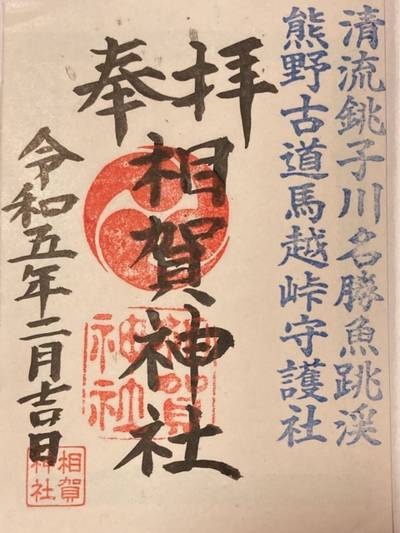 清流銚子川名勝魚跳渓
熊野古道馬越峠守護社
奉拝
相賀神社
相賀神社
令和五年二月吉日
相賀
神社